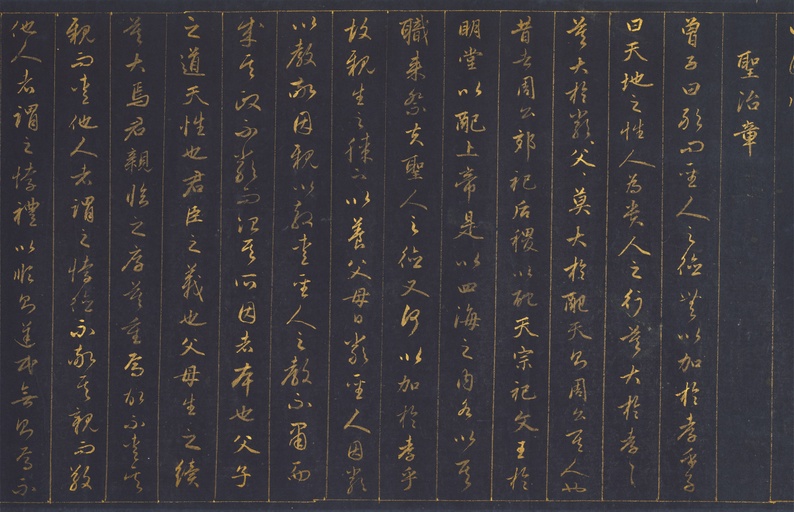 聖治章
曾子曰敢問聖人之德無以加於孝乎子
曰天地之性人為貴人之行莫大於孝〻
莫大於嚴父〻莫大於配天則周公其人也
昔者周公郊祀后稷以配天宗祀文王於
明堂以配上帝是以四海之內各以其
職來祭夫聖人之德又何以加於孝乎
故親生之膝下以養父母日嚴聖人因嚴
以教敬因親以教愛聖人之教不肅而
成其政不嚴而治其所因者本也父子
之道天性也君臣之義也父母生之續
莫大焉君親臨之厚莫重焉故不愛其
親而愛他人者謂之悖德不敬其親而敬
他人者謂之悖禮以順則逆民無則焉不